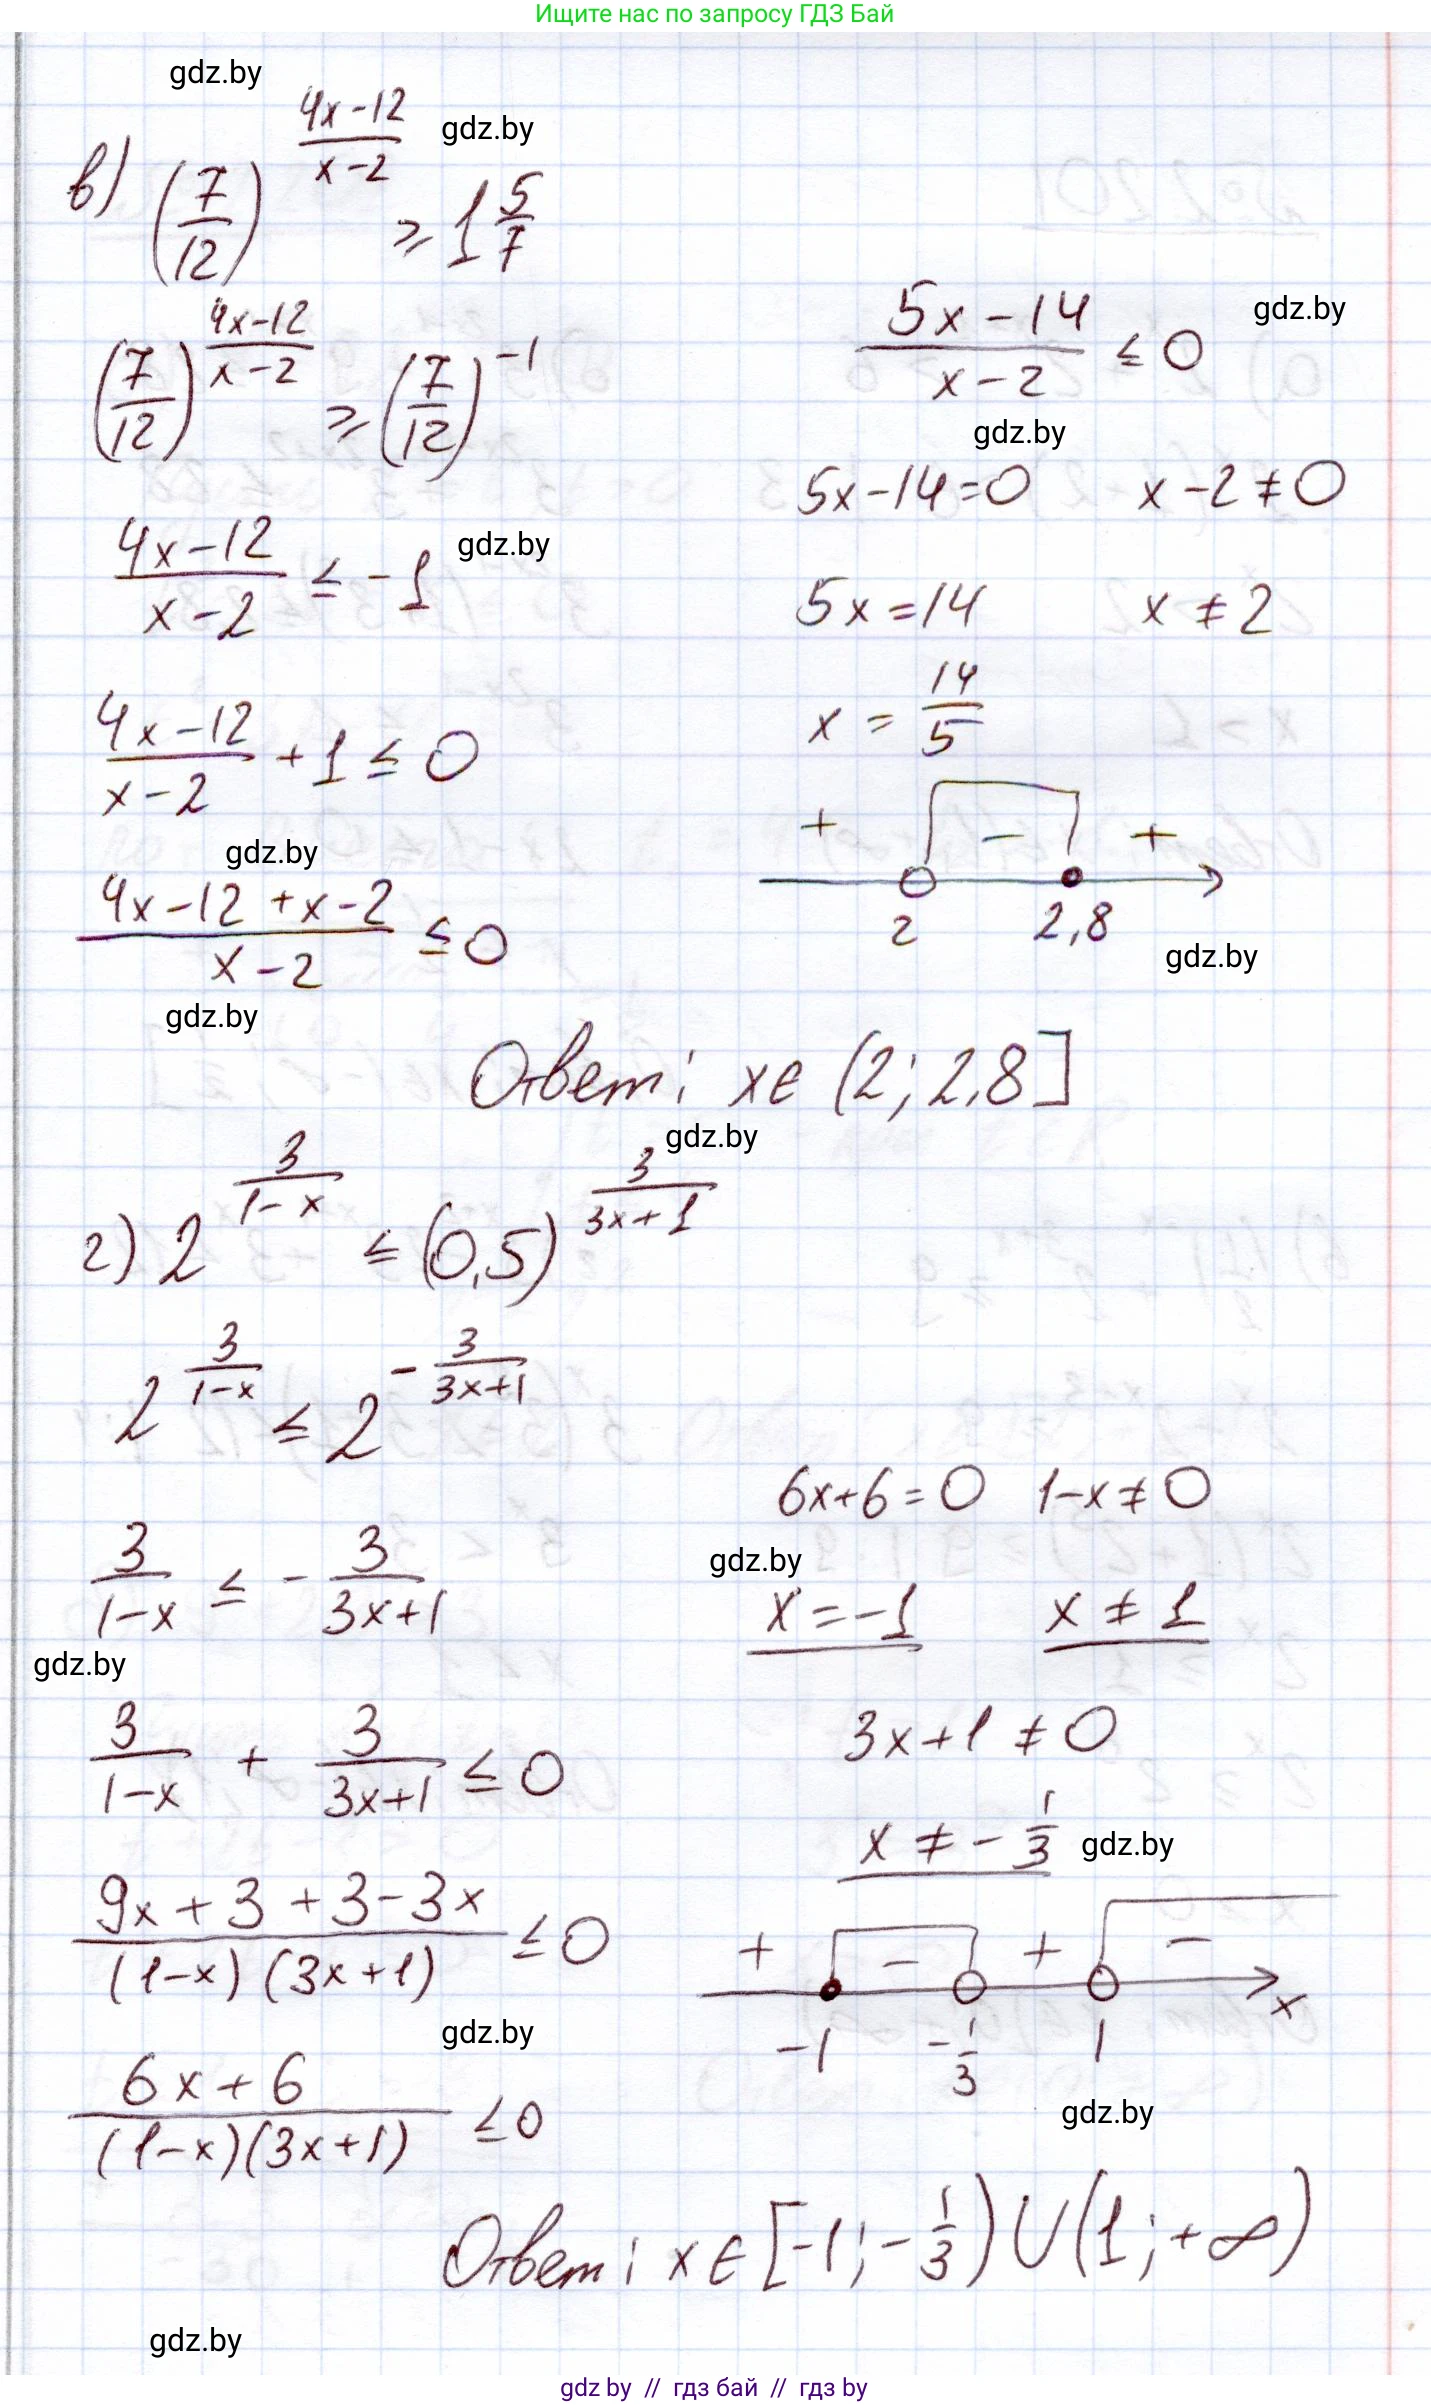 Ищите нас по запросу ГДЗ Бай
gdz.by
в) (7/12)^((4x-12)/(x-2)) ≥ 1 5/7
gdz.by
(7/12)^((4x-12)/(x-2)) ≥ (7/12)^(-1)
(4x-12)/(x-2) ≤ -1
gdz.by
(4x-12)/(x-2) + 1 ≤ 0
gdz.by
(4x-12+x-2)/(x-2) ≤ 0
gdz.by
(5x-14)/(x-2) ≤ 0
gdz.by
gdz.by
5x-14=0 x-2≠0
5x=14 x≠2
x = 14/5
+ - +
2 2,8
gdz.by
Ответ: x∈(2; 2,8]
gdz.by
г) 2^(3/(1-x)) ≤ (0,5)^(3/(3x+1))
2^(3/(1-x)) ≤ 2^(-3/(3x+1))
3/(1-x) ≤ - 3/(3x+1)
gdz.by
3/(1-x) + 3/(3x+1) ≤ 0
(9x+3+3-3x)/((1-x)(3x+1)) ≤ 0
gdz.by
(6x+6)/((1-x)(3x+1)) ≤ 0
6x+6=0 1-x≠0
gdz.by
x=-1 x≠1
3x+1≠0
x≠-1/3
gdz.by
+ - + -
x
-1 -1/3 1
gdz.by
Ответ: x∈[-1; -1/3)∪(1; +∞)
gdz.by
gdz by // гдз бай // гдз by